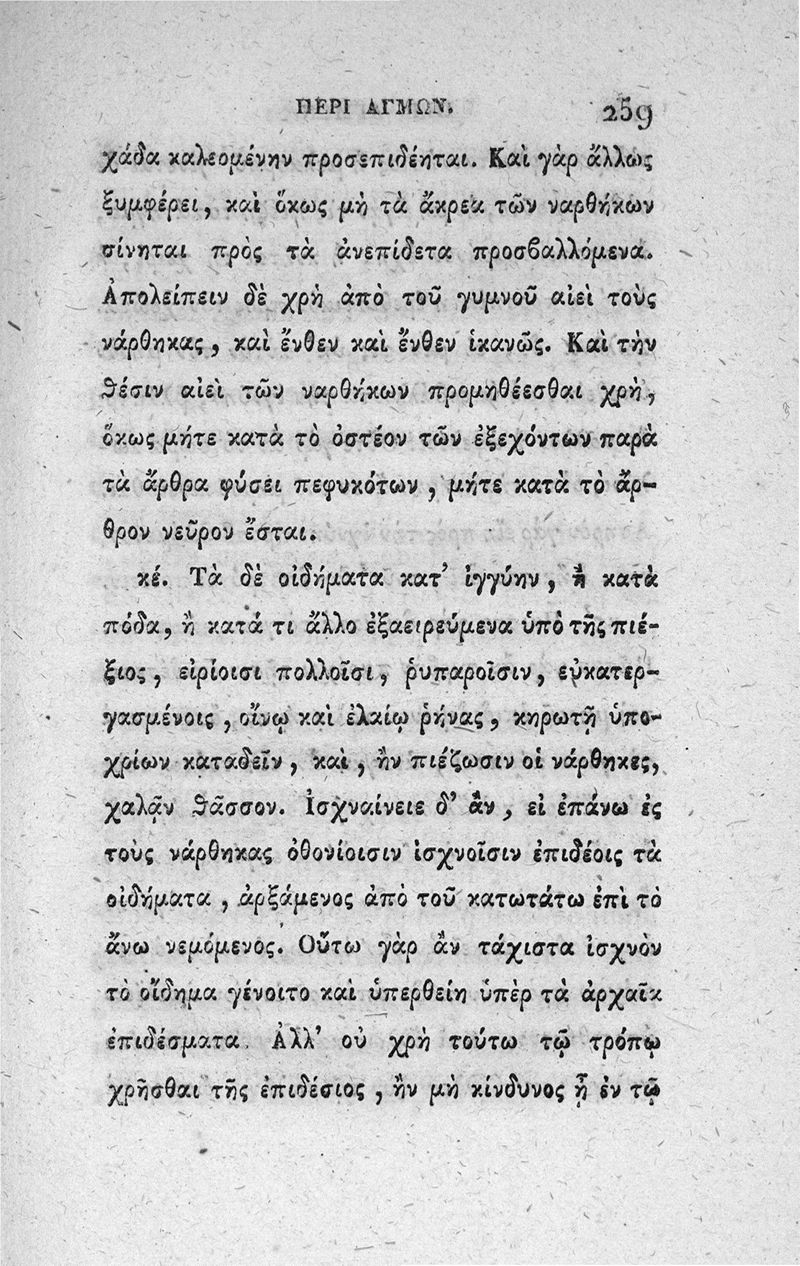 ΠΕΡΙ ΑΓΜΩΝ. 259
χάδα καλεομένην προσεπιδέηται. Καὶ γὰρ ἄλλως
ξυμφέρει, καὶ ὅκως μὴ τὰ ἄκρεα τῶν ναρθήκων
σίνηται πρὸς τὰ ἀνεπίδετα προσβαλλόμενα.
Ἀπολείπειν δὲ χρὴ ἀπὸ τοῦ γυμνοῦ αἰεὶ τοὺς
νάρθηκας, καὶ ἔνθεν καὶ ἔνθεν ἱκανῶς. Καὶ τὴν
θέσιν αἰεὶ τῶν ναρθήκων προμηθέεσθαι χρὴ,
ὅκως μήτε κατὰ τὸ ὀστέον τῶν ἐξεχόντων παρὰ
τὰ ἄρθρα φύσει πεφυκότων, μήτε κατὰ τὸ ἄρ-
θρον νεῦρον ἔσται.
κέ. Τὰ δὲ οἰδήματα κατ' ἰγγύην, ἢ κατὰ
πόδα, ἢ κατά τι ἄλλο ἐξαειρεύμενα ὑπὸ τῆς πιέ-
ξιος, εἰρίοισι πολλοῖσι, ῥυπαροῖσιν, εὐκατερ-
γασμένοις, οἴνῳ καὶ ἐλαίῳ ῥήνας, κηρωτῇ ὑπο-
χρίων καταδεῖν, καὶ, ἢν πιέζωσιν οἱ νάρθηκες,
χαλᾷν θᾶσσον. Ἰσχναίνειε δ' ἂν, εἰ ἐπάνω ἐς
τοὺς νάρθηκας ὀθονίοισιν ἰσχνοῖσιν ἐπιδέοις τὰ
οἰδήματα, ἀρξάμενος ἀπὸ τοῦ κατωτάτω ἐπὶ τὸ
ἄνω νεμόμενος. Οὕτω γὰρ ἂν τάχιστα ἰσχνὸν
τὸ οἴδημα γένοιτο καὶ ὑπερθείη ὑπὲρ τὰ ἀρχαῖα
ἐπιδέσματα. Ἀλλ' οὐ χρὴ τούτω τῷ τρόπῳ
χρῆσθαι τῆς ἐπιδέσιος, ἢν μὴ κίνδυνος ᾖ ἐν τῷ